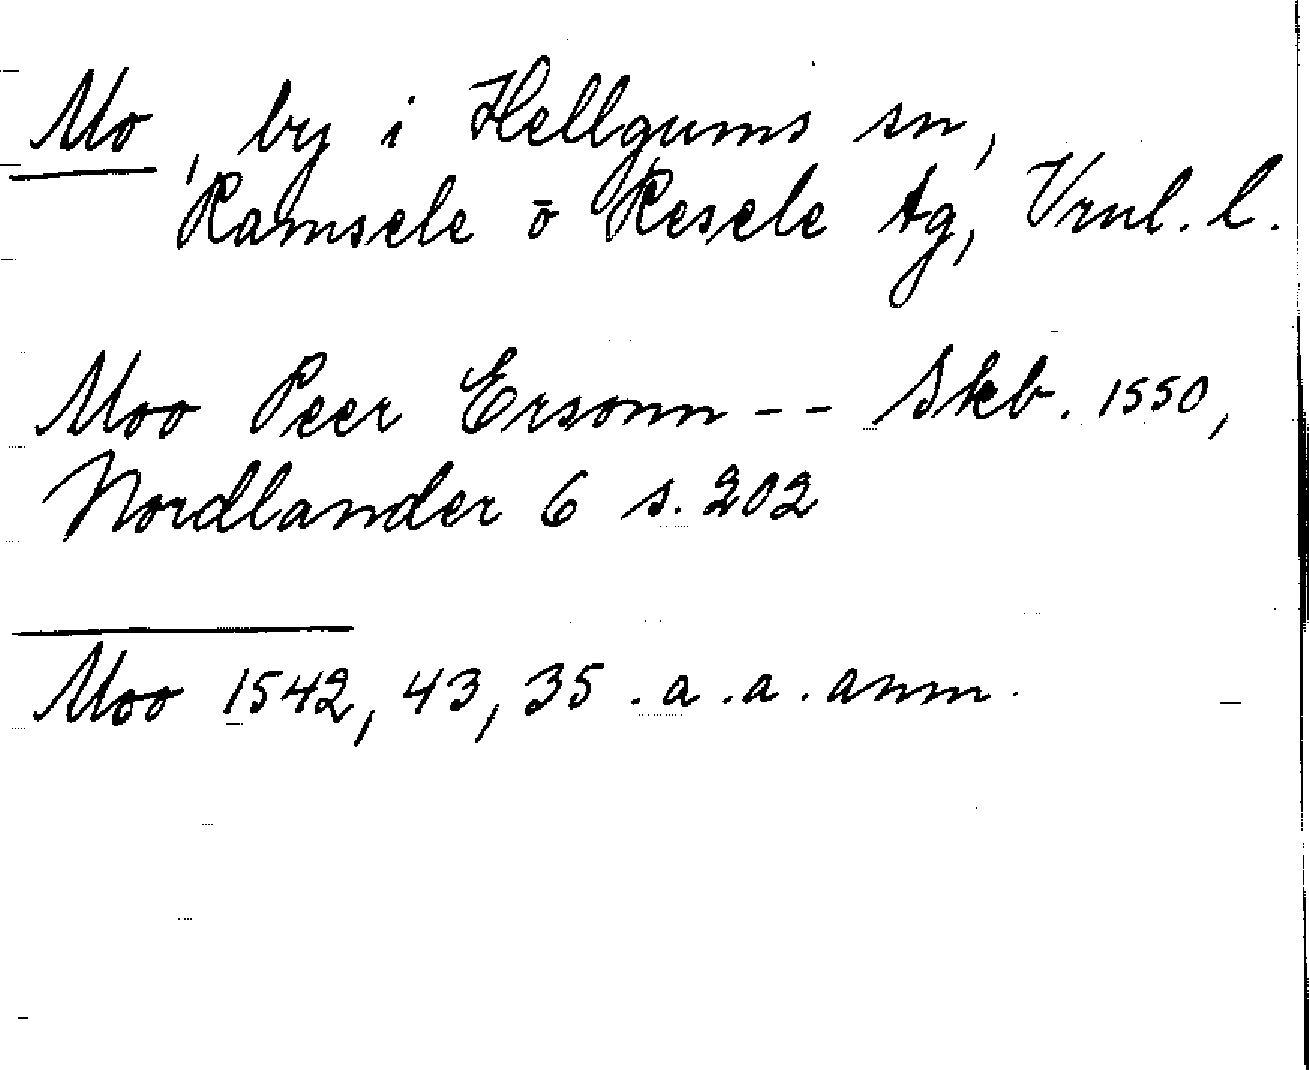 Mo, by i Hellgums sn,
Ramsele o Resele tg, Vrnl. l.
Moo Peer Ersonn -- Skb. 1550,
Nordlander 6 s. 202
Moo 1542, 43, 35 . a . a . anm .